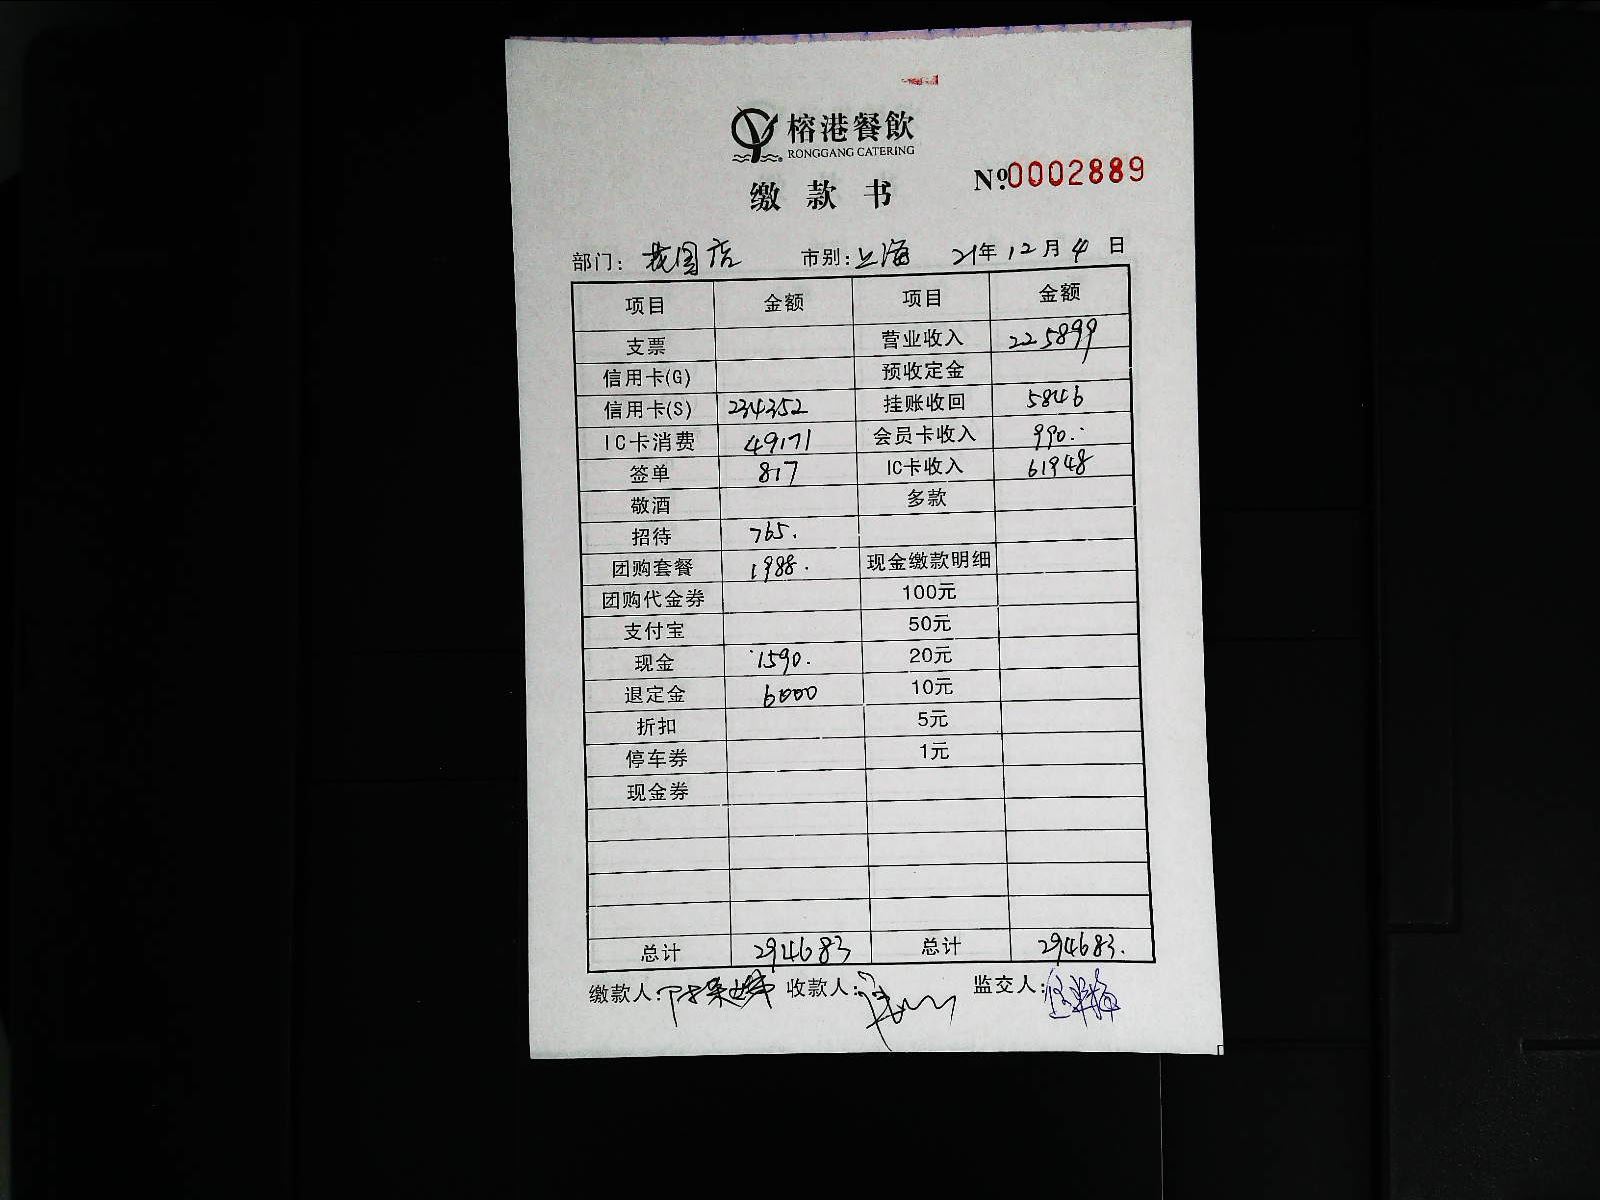 榕港餐飲
RONGGANG CATERING
缴款书 Nº.0002889
部门： 店 市别：上海 21年12月4日
项目 金额 项目 金额
支票 营业收入 225899
信用卡(G) 预收定金
信用卡(S) 234352 挂账收回 5846
IC卡消费 49171 会员卡收入 990.
签单 817 IC卡收入 61948
敬酒 多款
招待 765.
团购套餐 1988. 现金缴款明细
团购代金券 100元
支付宝 50元
现金 1590. 20元
退定金 6000 10元
折扣 5元
停车券 1元
现金券
总计 294683 总计 294683.
缴款人: 收款人: 监交人: